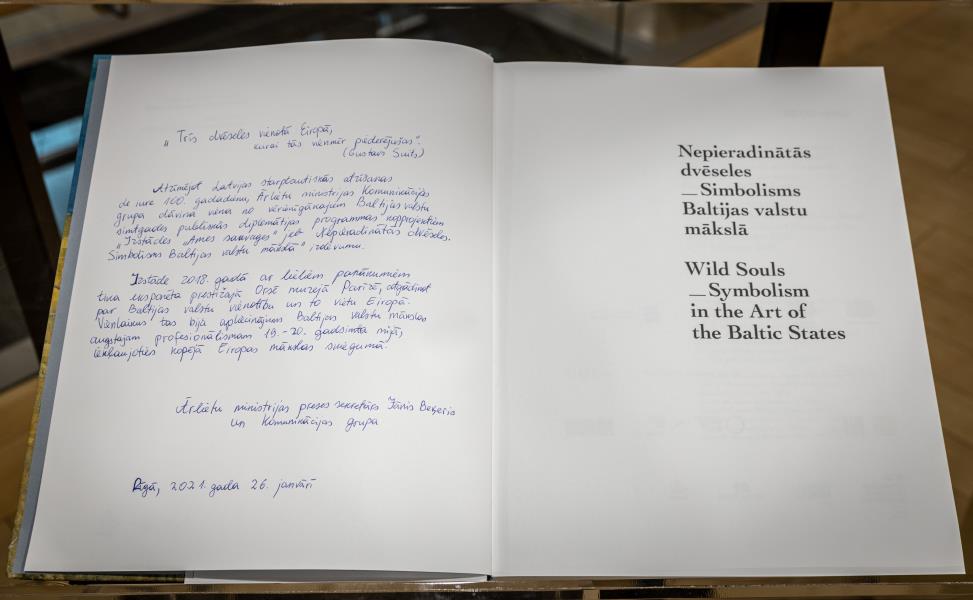 „Trīs dvēseles vienotā Eiropā,
kurai tās vienmēr piederējušas".
(Gustavs Suits)
Atzīmējot Latvijas starptautiskās atzīšanas
de iure 100. gadadienu, Ārlietu ministrijas Komunikācijas
grupa dāvina vienu no vērienīgākajiem Baltijas valstu
simtgades publiskās diplomātijas programmas kopprojektiem
"Izstādes „Ames sauvages" jeb Nepieradinātās dvēseles.
Simbolisms Baltijas valstu mākslā" izdevumu.
Izstāde 2018. gadā ar lieliem panākumiem
tika eksponēta prestižajā Orsē muzejā Parīzē, atgādinot
par Baltijas valstu vienotību un to vietu Eiropā.
Vienlaikus tas bija apliecinājums Baltijas valstu mākslas
augstajam profesionālismam 19.-20. gadsimta mijā,
iekļaujoties kopējā Eiropas mākslas sniegumā.
Ārlietu ministrijas preses sekretārs Jānis Beķeris
un Komunikācijas grupa
Rīgā, 2021. gada 26. janvārī
Nepieradinātās
dvēseles
—Simbolisms
Baltijas valstu
mākslā
Wild Souls
—Symbolism
in the Art of
the Baltic States